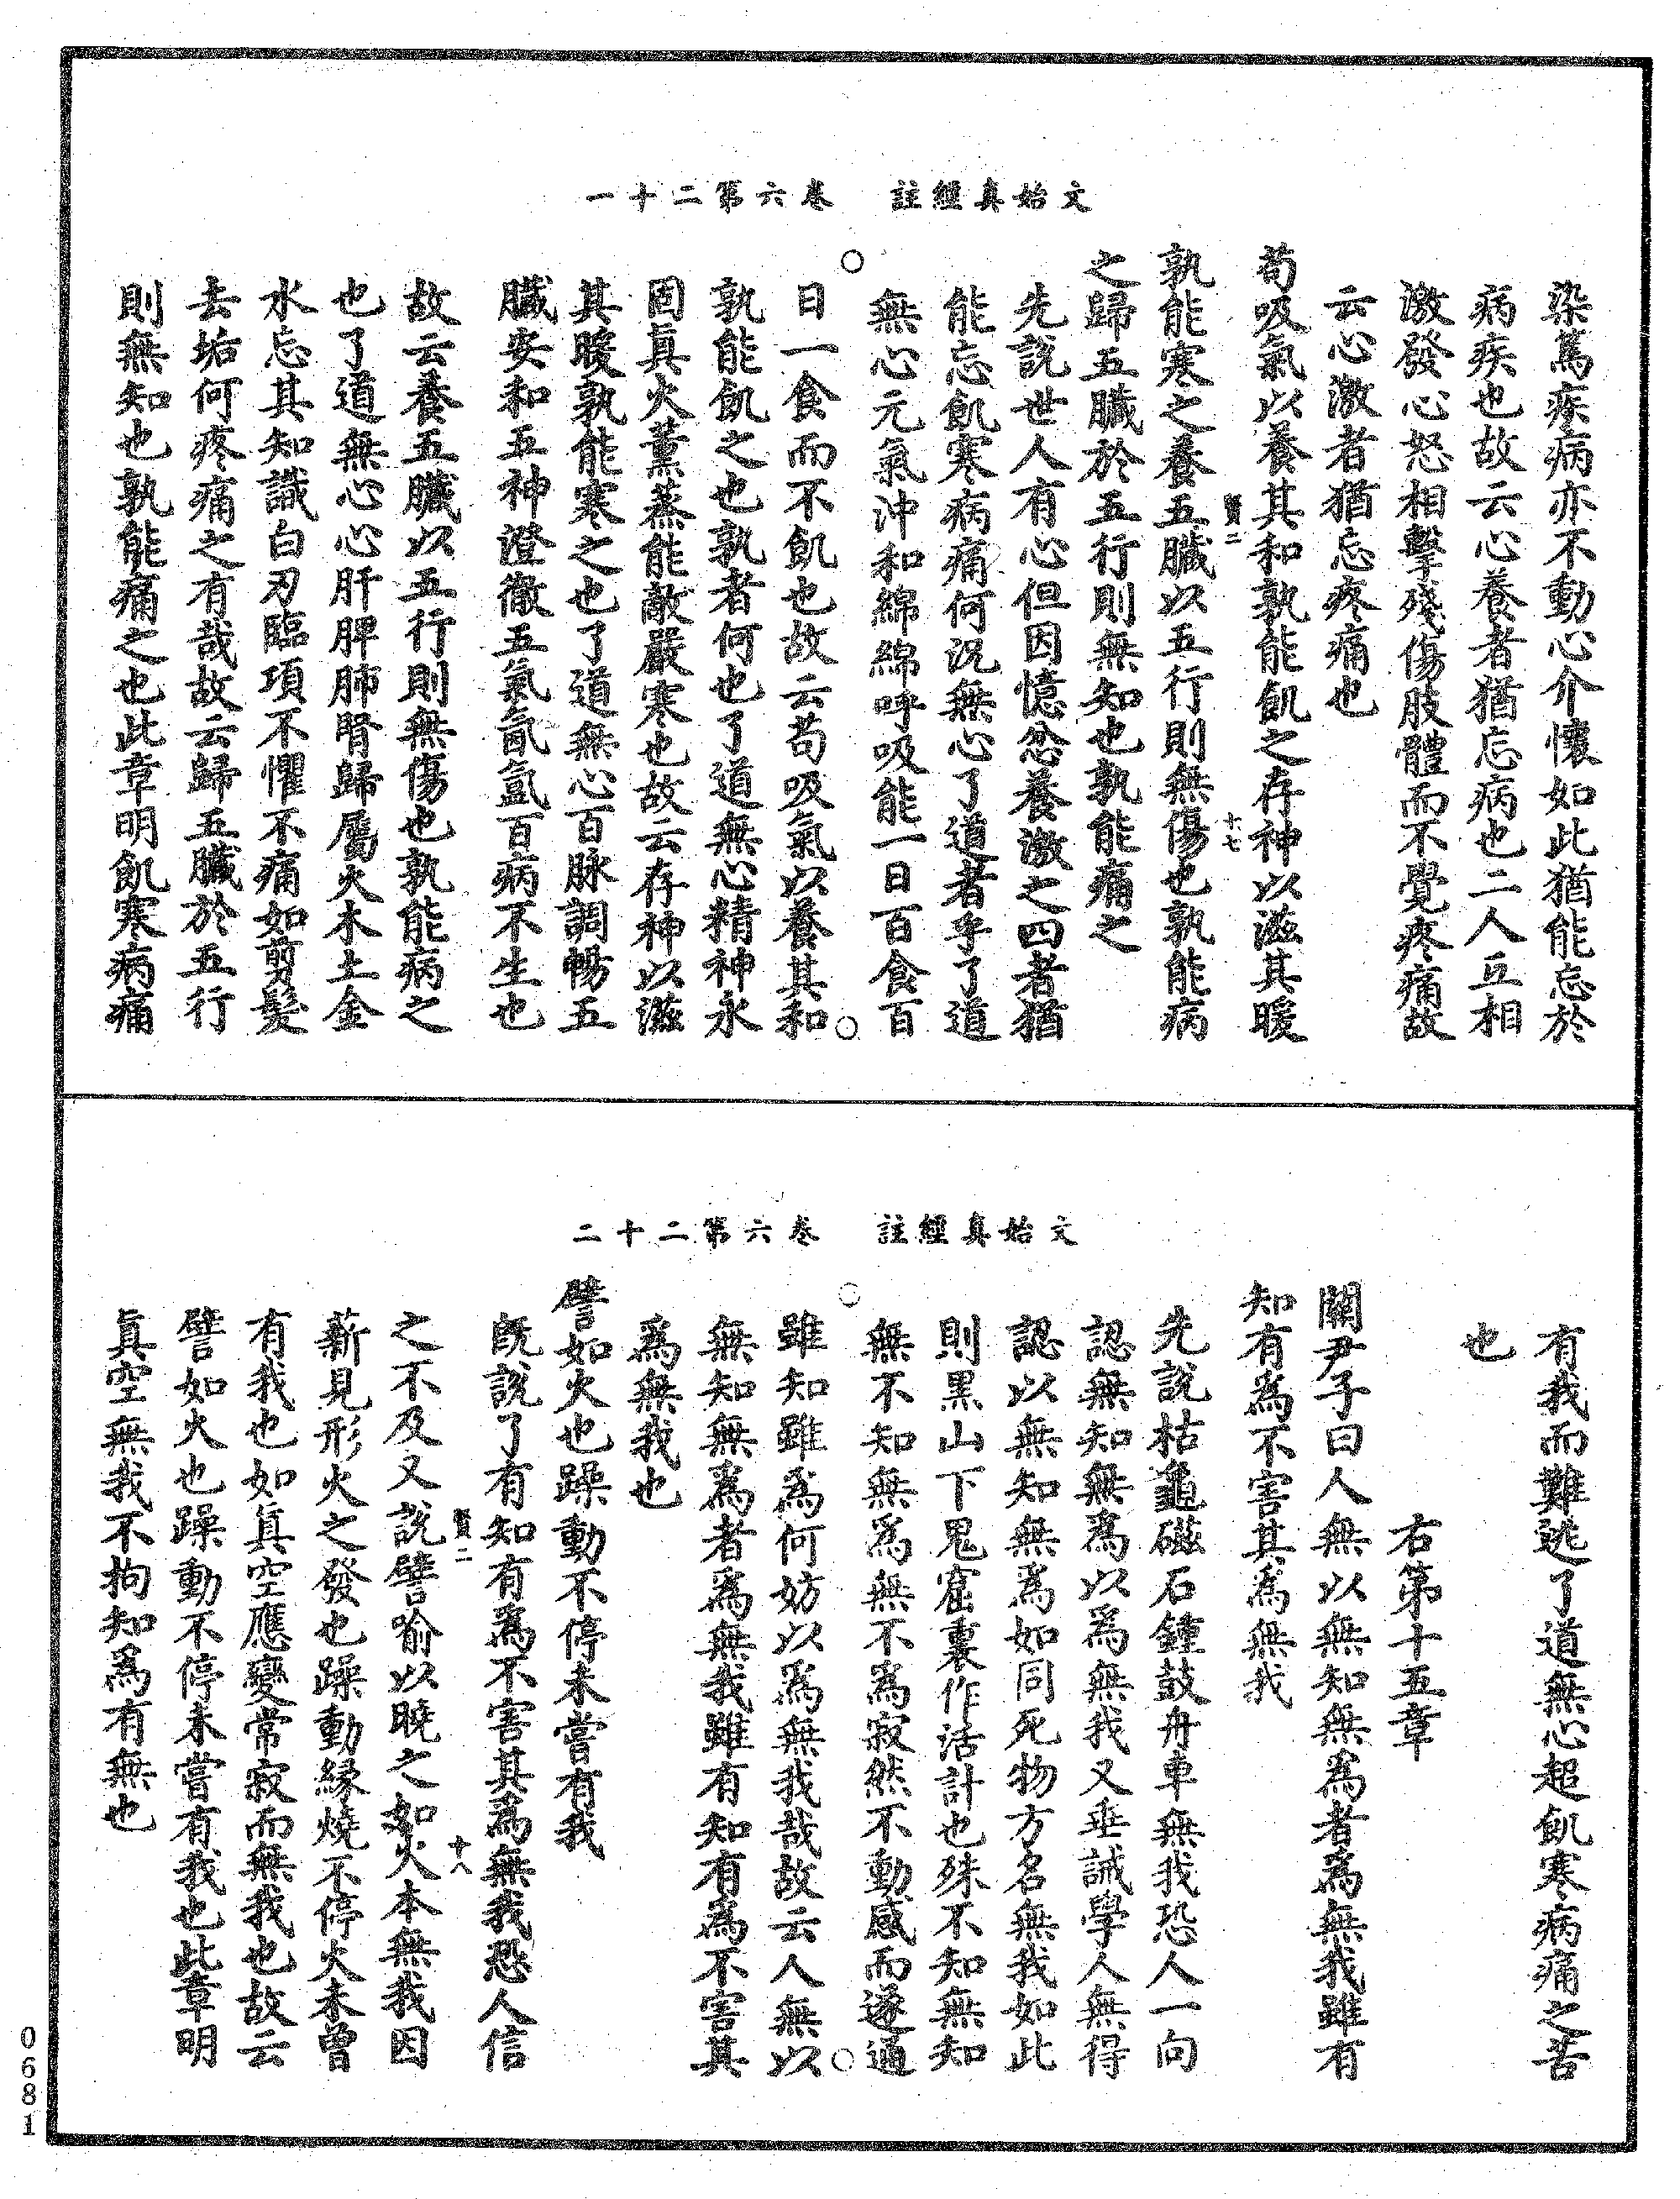 文始真經註　卷六第二十一
染篤疾病亦不動心介懷如此猶能忘於
病疾也故云心養者猶忘病也二人互相
激發心怒相擊殘傷肢體而不覺疼痛故
云心激者猶忘疼痛也
苟吸氣以養其和孰能飢之存神以滋其暖
賢二　十七
孰能寒之養五臟以五行則無傷也孰能病
之歸五臟於五行則無知也孰能痛之
先說世人有心但因憶忿養激之四者猶
能忘飢寒病痛何況無心了道者乎了道
無心元氣沖和綿綿呼吸能一日百食百
日一食而不飢也故云苟吸氣以養其和
孰能飢之也孰者何也了道無心精神永
固眞火薰蒸能敵嚴寒也故云存神以滋
其暖孰能寒之也了道無心百脉調暢五
臟安和五神澄徹五氣氤氳百病不生也
故云養五臟以五行則無傷也孰能病之
也了道無心心肝脾肺腎歸屬火木土金
水忘其知識白刃臨項不懼不痛如剪髮
去垢何疼痛之有哉故云歸五臟於五行
則無知也孰能痛之也此章明飢寒病痛
文始真經註　卷六第二十二
有我而難逃了道無心超飢寒病痛之苦
也
右第十五章
關尹子曰人無以無知無爲者爲無我雖有
知有爲不害其爲無我
先說枯龜磁石鍾鼓舟車無我恐人一向
認無知無爲以爲無我又垂誡學人無得
認以無知無爲如同死物方名無我如此
則黑山下鬼窟裏作活計也殊不知無知
無不知無爲無不爲寂然不動感而遂通
雖知雖爲何妨以爲無我哉故云人無以
無知無爲者爲無我雖有知有爲不害其
爲無我也
譬如火也躁動不停未嘗有我
旣說了有知有爲不害其爲無我恐人信
賢二　十八
之不及又說譬喻以曉之如火本無我因
薪見形火之發也躁動緣燒不停火未曾
有我也如眞空應變常寂而無我也故云
譬如火也躁動不停未嘗有我也此章明
眞空無我不拘知爲有無也
0681